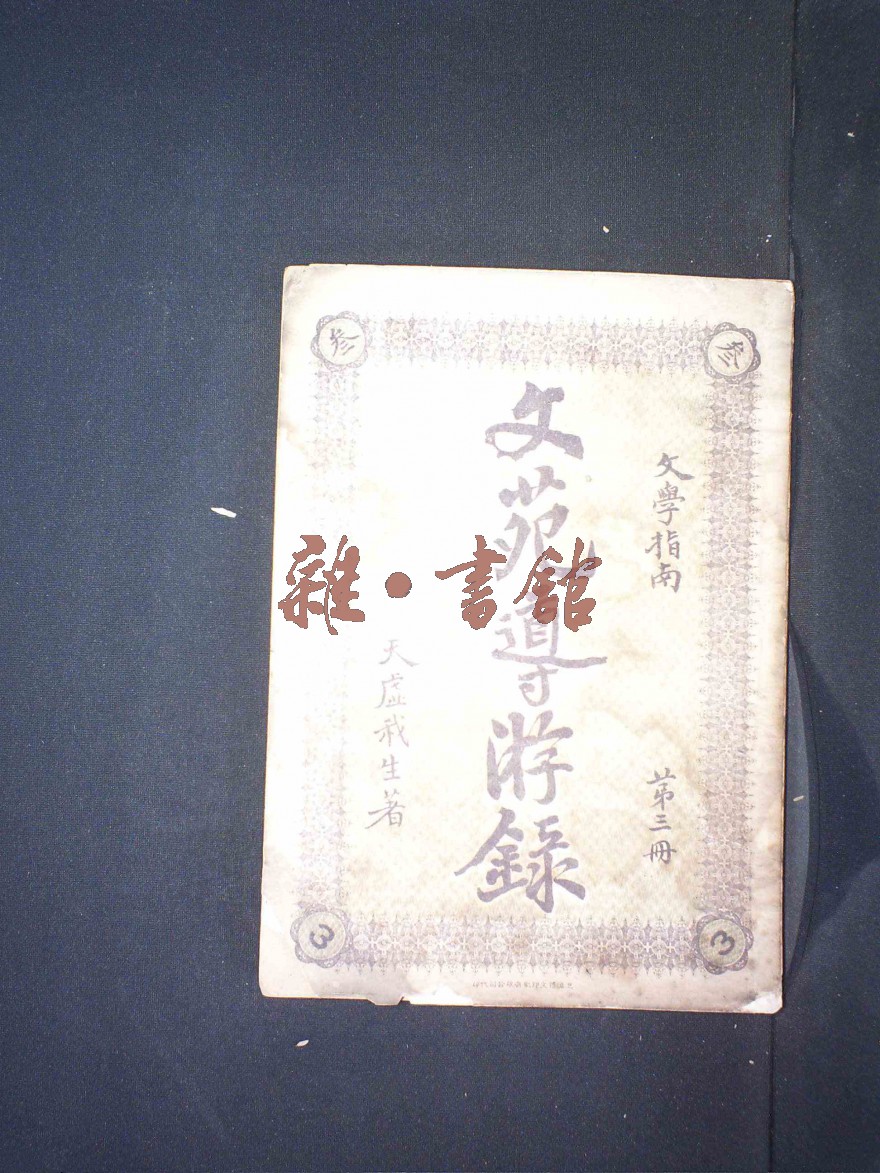 文學指南
第三冊
文苑導游錄
天虛我生著
叁
叁
3
3
雜·書館